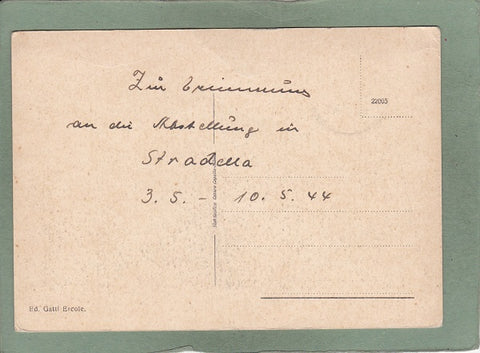 Zur Erinnerung
an die Abstellung in
Stradella
3. 5. - 10. 5. 44
22003
Ed. Gatti Ercole.